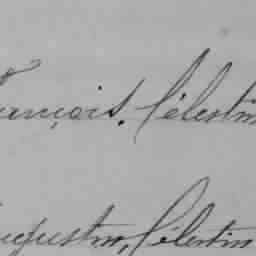 François. Célestin
Augustin, Célestin